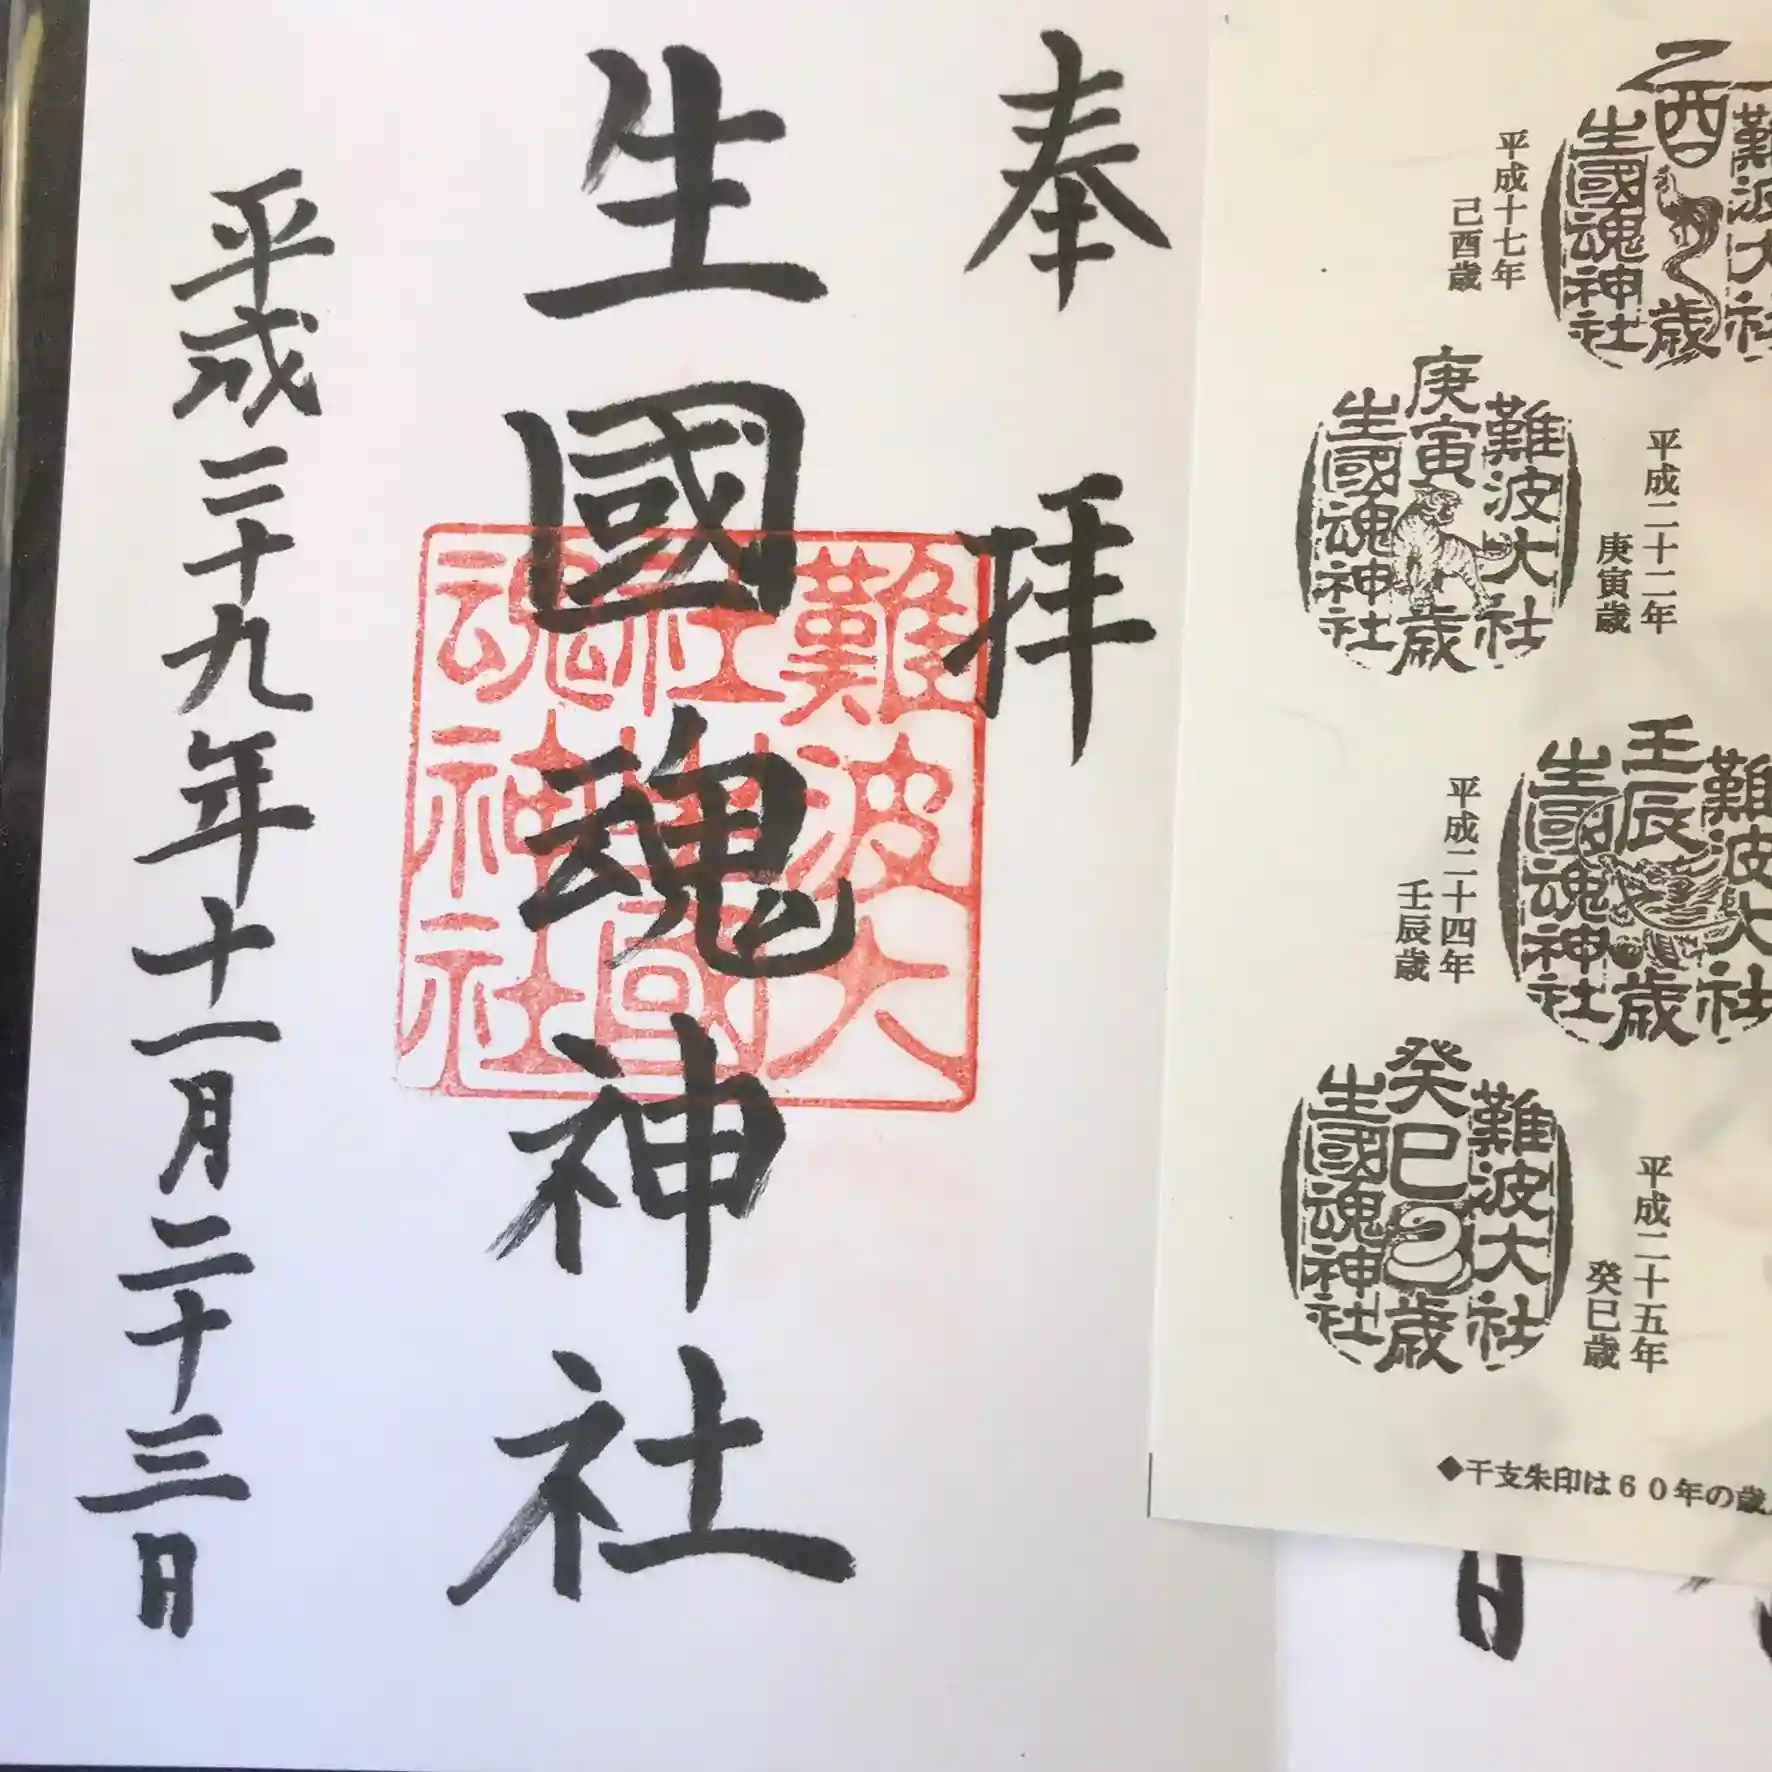 奉拝
生國魂神社
平成二十九年十一月二十三日
難波大
社生國
魂神社
難波大社
乙酉歳
生國魂神社
平成十七年
己酉歳
平成二十二年
庚寅歳
難波大社
庚寅歳
生國魂神社
難波大社
壬辰歳
生國魂神社
平成二十四年
壬辰歳
平成二十五年
癸巳歳
難波大社
癸巳歳
生國魂神社
◆干支朱印は60年の歳
日